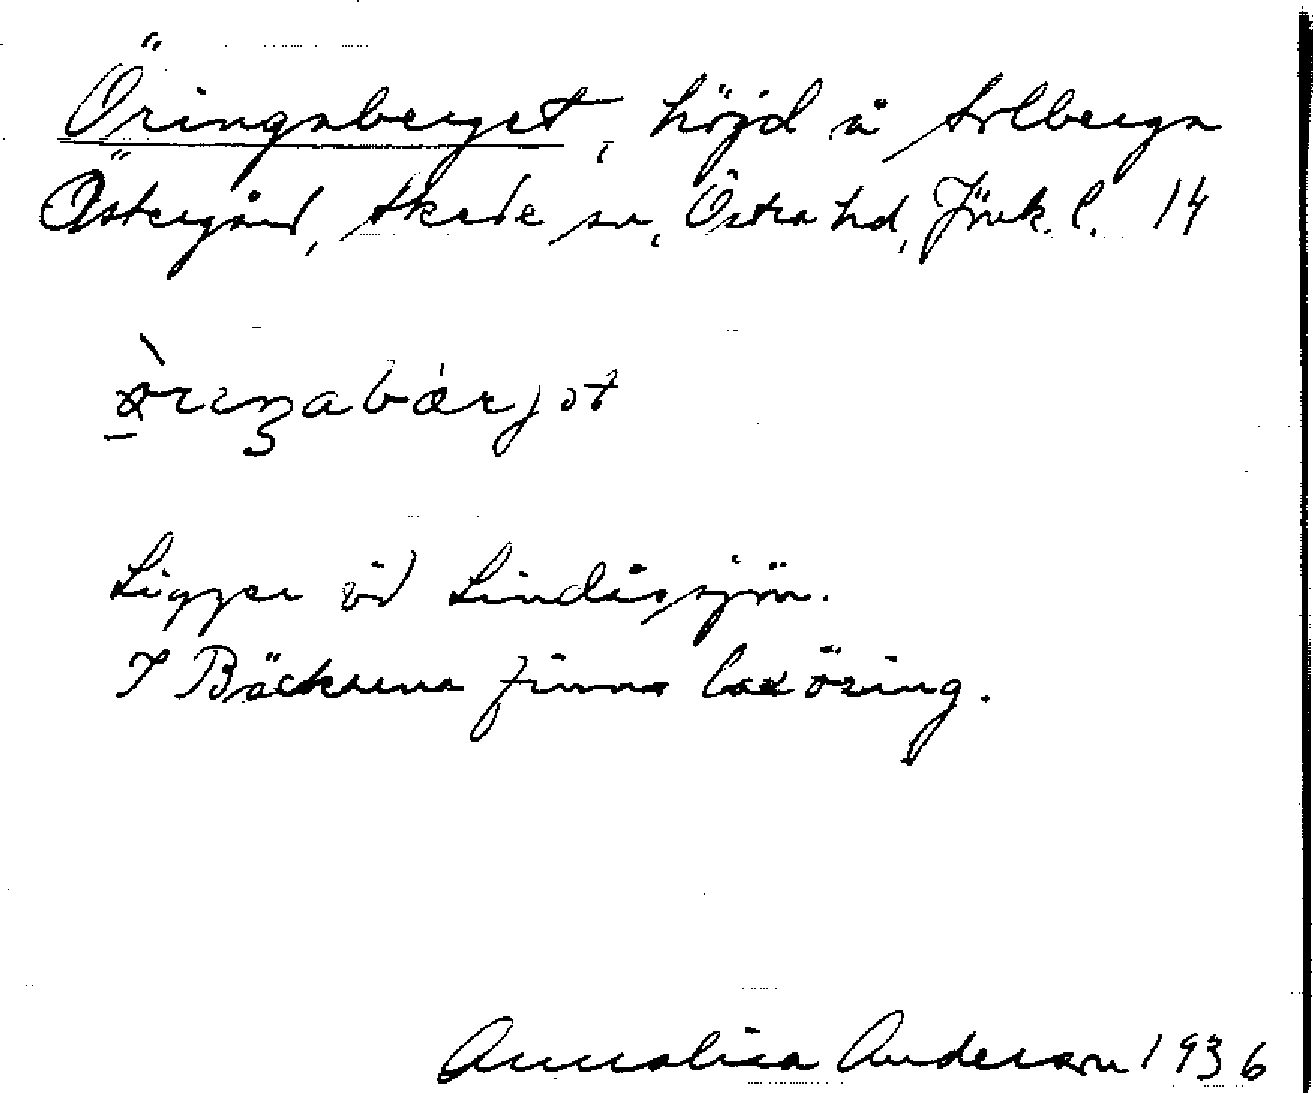 Öringaberget, höjd å Solberga
Östergård, Skede sn, Östra hd, Jönk. l. 14
Ligger vid Lindåssjön.
I Bäckarna finns laxöring.
Annalisa Anderson 1936